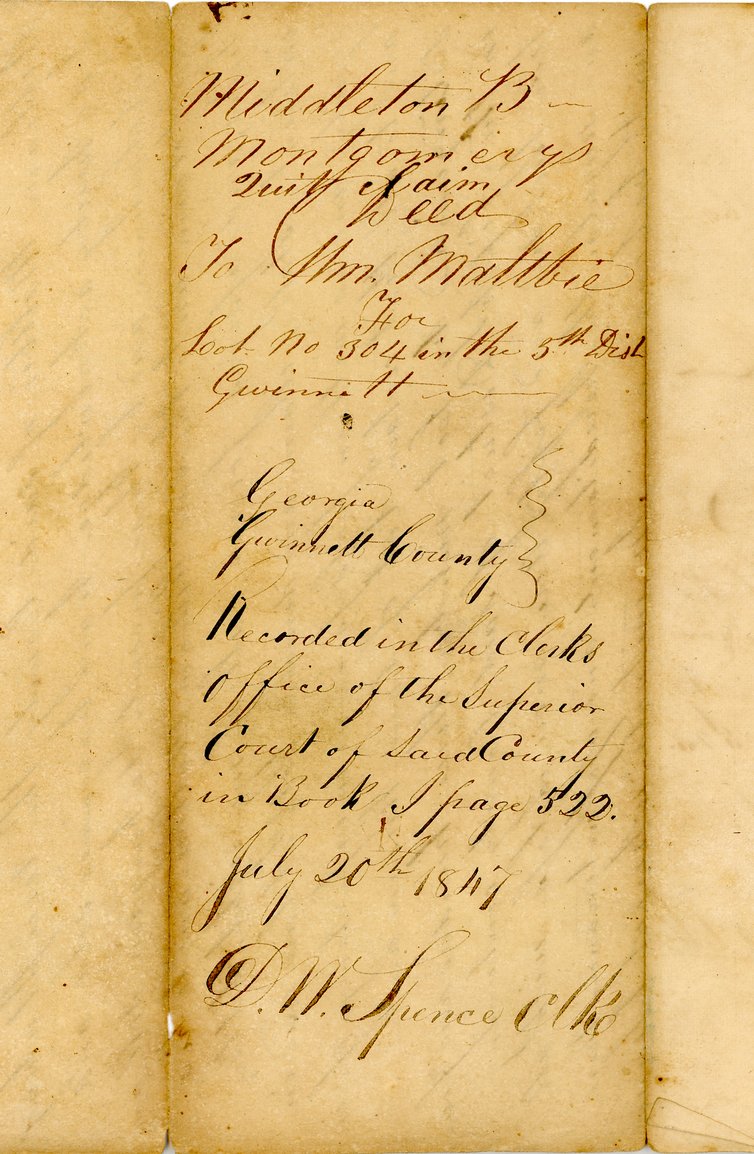 Middleton B
Montgomerys
Quitt Claim
Deed
To Wm. Maltbie
For
Lot No 304 in the 5th Dist
Gwinnett
Georgia
Gwinnett County
Recorded in the Clerks
office of the Superior
Court of Said County
in Book I page 522.
July 20th 1847
D. W. Spence Clk